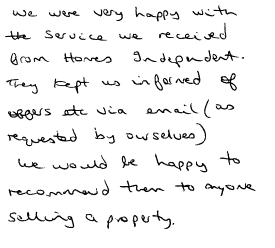 We were very happy with
the service we received
from Homes Independent.
They kept us informed of
offers etc via email (as
requested by ourselves)
We would be happy to
recommend them to anyone
selling a property.